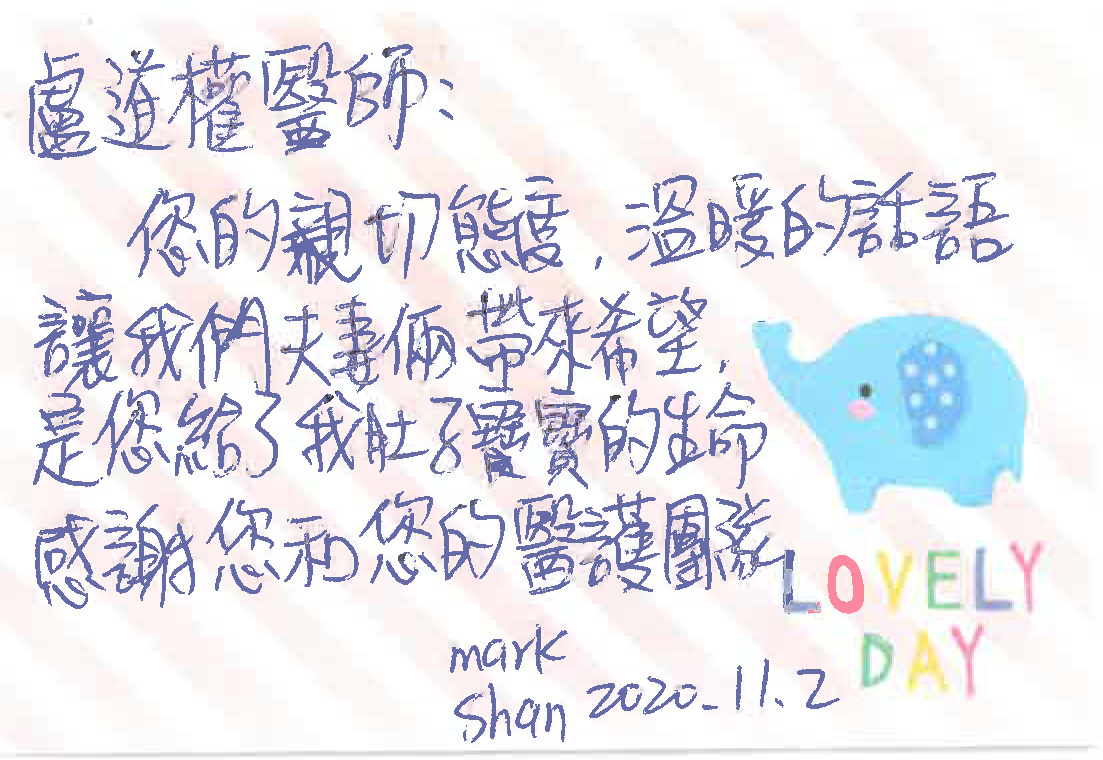 盧道權醫師：
您的親切態度，溫暖的話語
讓我們夫妻倆帶來希望，
是您給了我肚子寶寶的生命
感謝您和您的醫護團隊
LOVELY
DAY
mark
Shan 2020.11.2